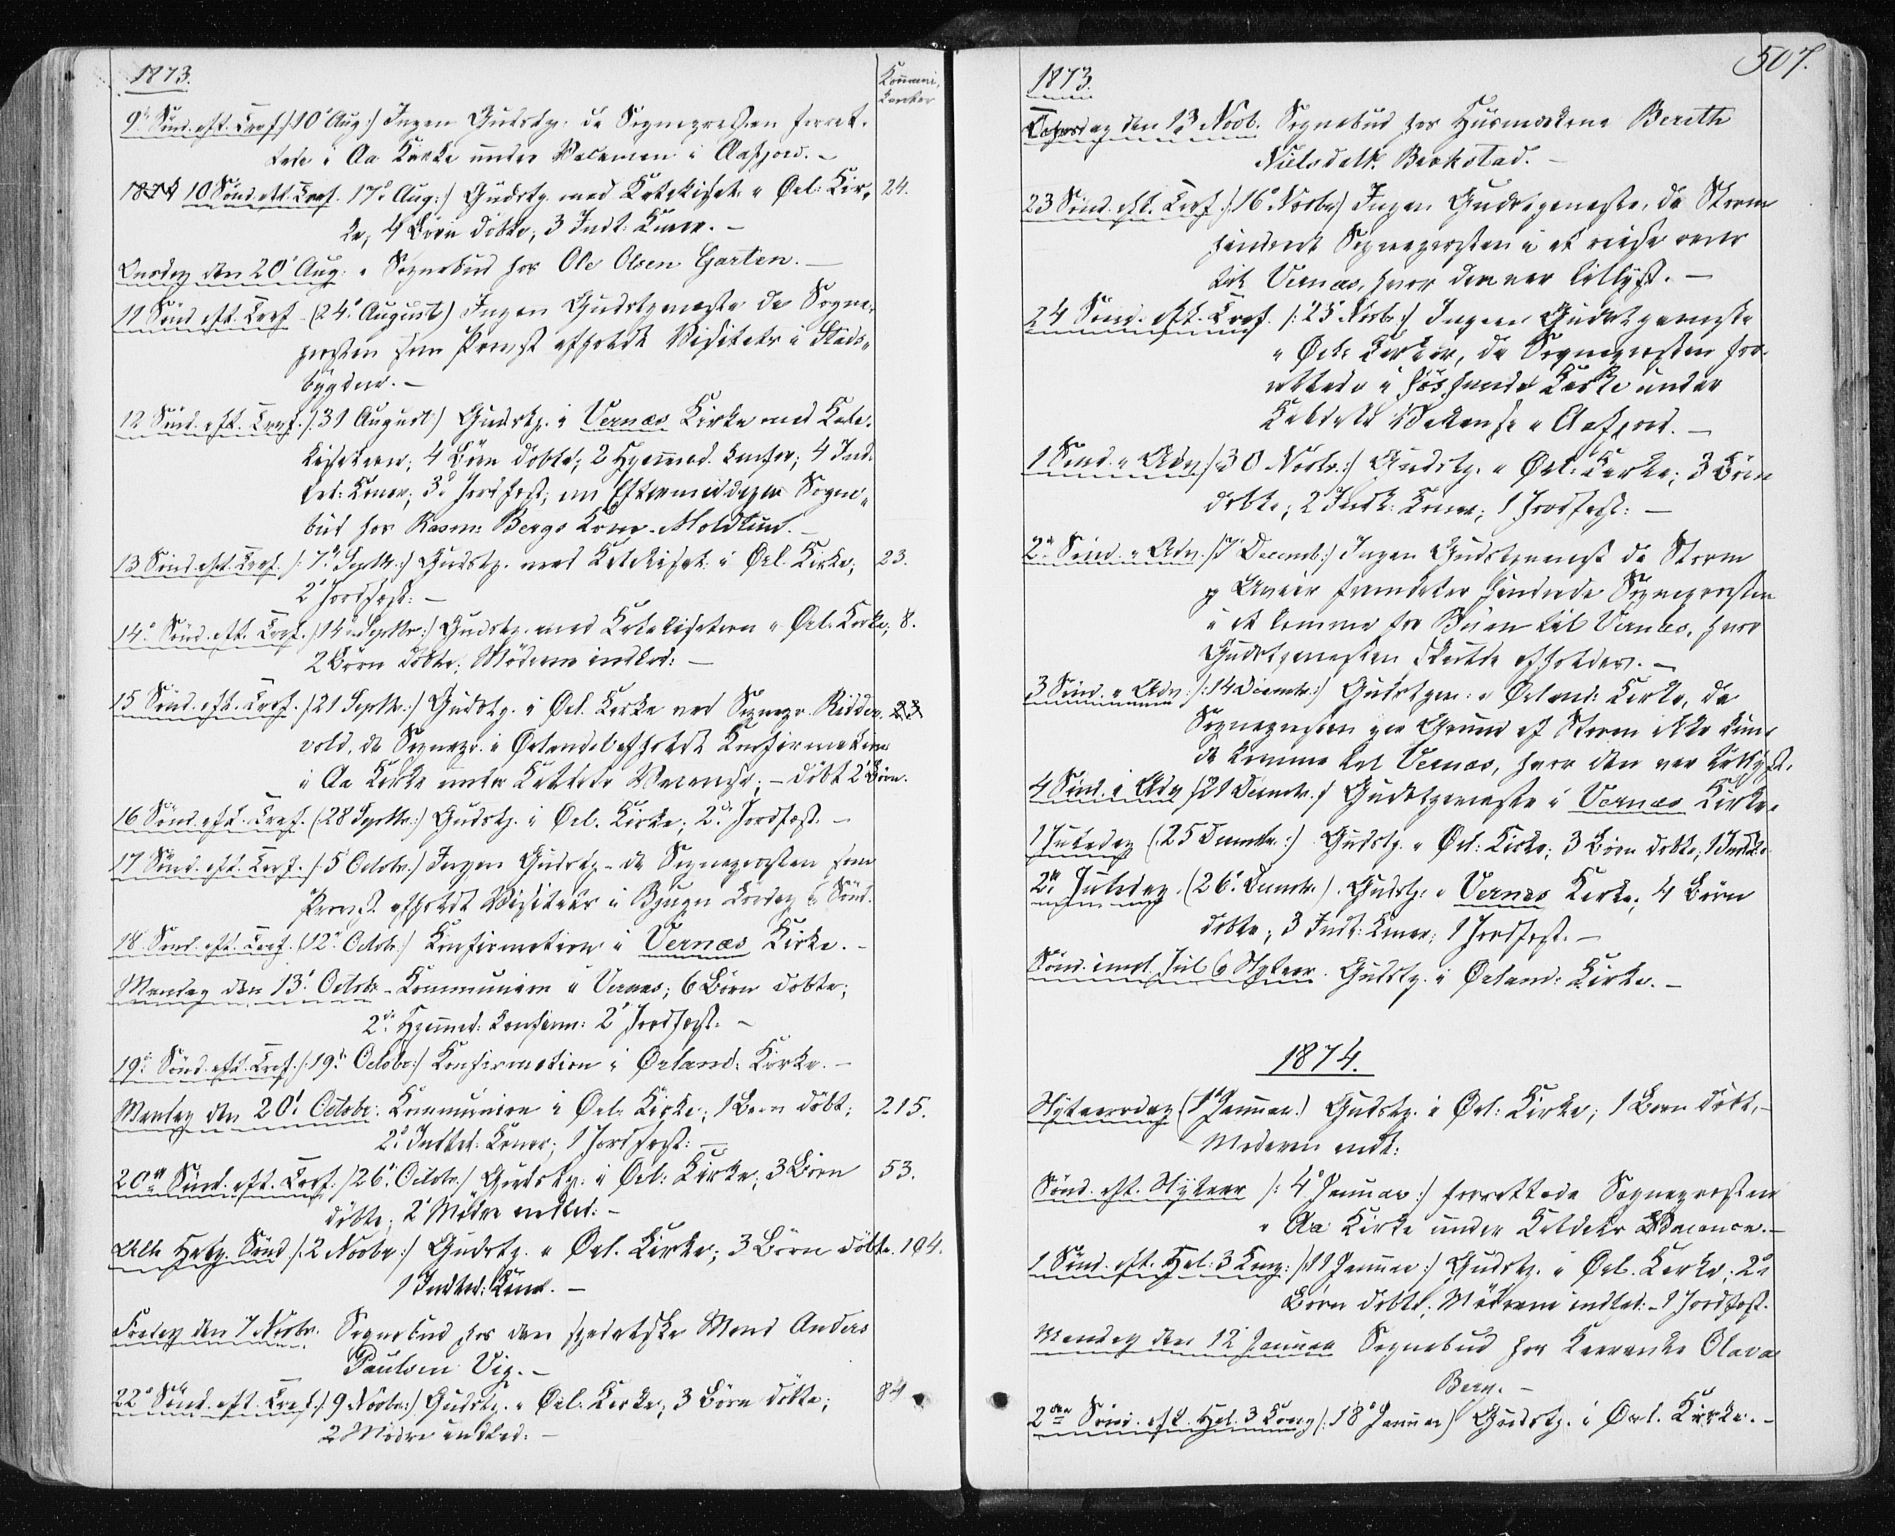 1873.
Kommuni-
kanter
9' Sönd. eft. Tref. /: 10' Aug:/ Ingen Gudstj. da Sognepresten forret-
tede i Aa Kirke under Vacancen i Aafjord. -
10 Sönd. eft. Tref. 17' Aug:/ Gudstj. med Katekisat. i Ørl. Kir- 24.
ke, 4 Börn döbte, 3 Indl: Koner. -
Onsdag den 20' Aug. Sognebud hos Ole Olsen Garten. -
11 Sönd. eft. Tref. (24' August) Ingen Gudstjeneste da Sogne-
presten som Provst afholdt Visitats i Stads-
bygden. -
12 Sönd. eft. Tref. /: 31 August/ Gudstj. i Vernæs Kirke med Kate-
kisation; 4 Börn döbte; 2 Hjemmed. Confir; 4 Ind-
led: Koner; 3 Jordfæst; om Eftermiddagen Sogne-
bud hos Rasm: Bergs Kone Moldtun. -
13 Sönd. eft. Tref. /: 7' Septbr:/ Gudstj. med Katekisat. i Ørl. Kirke; 23.
2 Jordfæst: -
14' Sönd. eft. Tref. /14 Septbr:/ Gudstj. med Katekisation i Ørl. Kirke, 8.
2 Börn döbte. Mödrene indled: -
15 Sönd. eft. Tref. /21 Septbr:/ Gudstj. i Ørl. Kirke ved Sognepr. Ridder-
vold, da Sognepr. i Ørlandet afholdt Konfirmation
i Aa Kirke under Kaldets Vacance; - döbt 2 Börn.
16 Sönd. eft. Tref. (28 Septbr:) Gudstj. i Ørl. Kirke; 2 Jordfæst. -
17 Sönd. eft. Tref. /: 5 Octobr:/ Ingen Gudstj. da Sognepresten som
Provst afholdt Visitats i Bjugn Lördag & Sönd.
18 Sönd. eft. Tref. (12' Octob:/ Konfirmation i Vernæs Kirke. -
Mandag den 13' Octobr - Kommunion i Vernæs; 6 Börn döbte;
2 Hjemmed: Konfirm: 2 Jordfæst. -
19' Sönd. eft. Tref. /: 19' Octobr:/ Konfirmation i Ørland: Kirke. -
Mandag den 20' Octobr. Kommunion i Ørl. Kirke; 1 Barn döbt; 215.
2 Indled: Koner; 1 Jordfæst: -
20de Sönd. eft. Tref. /26' Octobr./ Gudstj. i Ørl: Kirke, 3 Börn 53.
döbte; 2 Mödre indled: -
Alle Helg. Sönd /: 2 Novbr:/ Gudstj. i Ørl. Kirke; 3 Börn döbte. 104.
1 Indled: Kone. -
Fredag den 7 Novbr. Sognebud hos den spedalske Mand Anders
Paulsen Vig. -
22' Sönd. eft. Tref. /: 9 Novbr:/ Gudstj. i Ørl. Kirke; 3 Börn döbte; 84
2 Mödre indled: -
507.
1873.
Torsdag den 13 Novb. Sognebud hos Husmandskone Berethe
Nielsdatt. Berkstad. -
23 Sönd. eft. Tref. /: 16' Novbr/ Ingen Gudstjeneste, da Storm
hindrede Sognepresten i at reise over
til Vernæs, hvor den var tillyst. -
24 Sönd. eft. Tref. /: 23 Novbr:/ Ingen Gudstjeneste
i Ørl: Kirke, da Sognepresten for-
rettede i Kirke under
Kaldets Vakanse i Aafjord. -
1 Sönd. i Adv. /: 30 Novbr:/ Gudstj. i Ørl: Kirke; 3 Börn
döbte; 2 Indl: Koner; 1 Jordfæst: -
2' Sönd. i Adv. /7' Decemb:/ Ingen Gudstjeneste da Storm
og Uveir fremdeles hindrede Sognepresten
i at komme fra Byen til Vernæs, hvor
Gudstjenesten skulde afholdes. -
3 Sönd. i Adv: /: 14 Decembr:/ Gudstjen: i Ørland: Kirke, da
Sognepresten paa Grund af Storm ikke kun-
de komme til Vernæs, hvor den var tillyst.
4 Sönd. i Adv /21 Decembr./ Gudstjeneste i Vernæs Kirke.
1 Juledag (25 Decembr:) Gudstj. i Ørl: Kirke; 3 Börn döbte, 1 Indl:
2. Juledag (26' Decembr.). Gudstj: i Vernæs Kirke; 4 Börn
döbte; 3 Indl: Koner; 1 Jordfæst. -
Sönd. iml. Jul & Nytaar. Gudstj. i Ørland: Kirke. -
1874.
Nytaarsdag (1' Januar:) Gudstj. i Ørl: Kirke; 1 Barn döbt, -
Moderen indl:
Sönd. eft. Nytaar /: 4' Januar:/ forrettede Sognepresten
i Aa Kirke under Kaldets Vacance. -
1 Sönd. eft. Hel: 3 Kong: /11 Januar:/ Gudstj. i Ørl. Kirke. 2
Börn döbte. Mödrene indled: - 1 Jordfæst.
Mandag den 12' Januar Sognebud hos Olava
Berg. -
2den Sönd. eft. Hel. 3 Kong /: 18' Januar/ Gudstj. i Ørl. Kirke. -